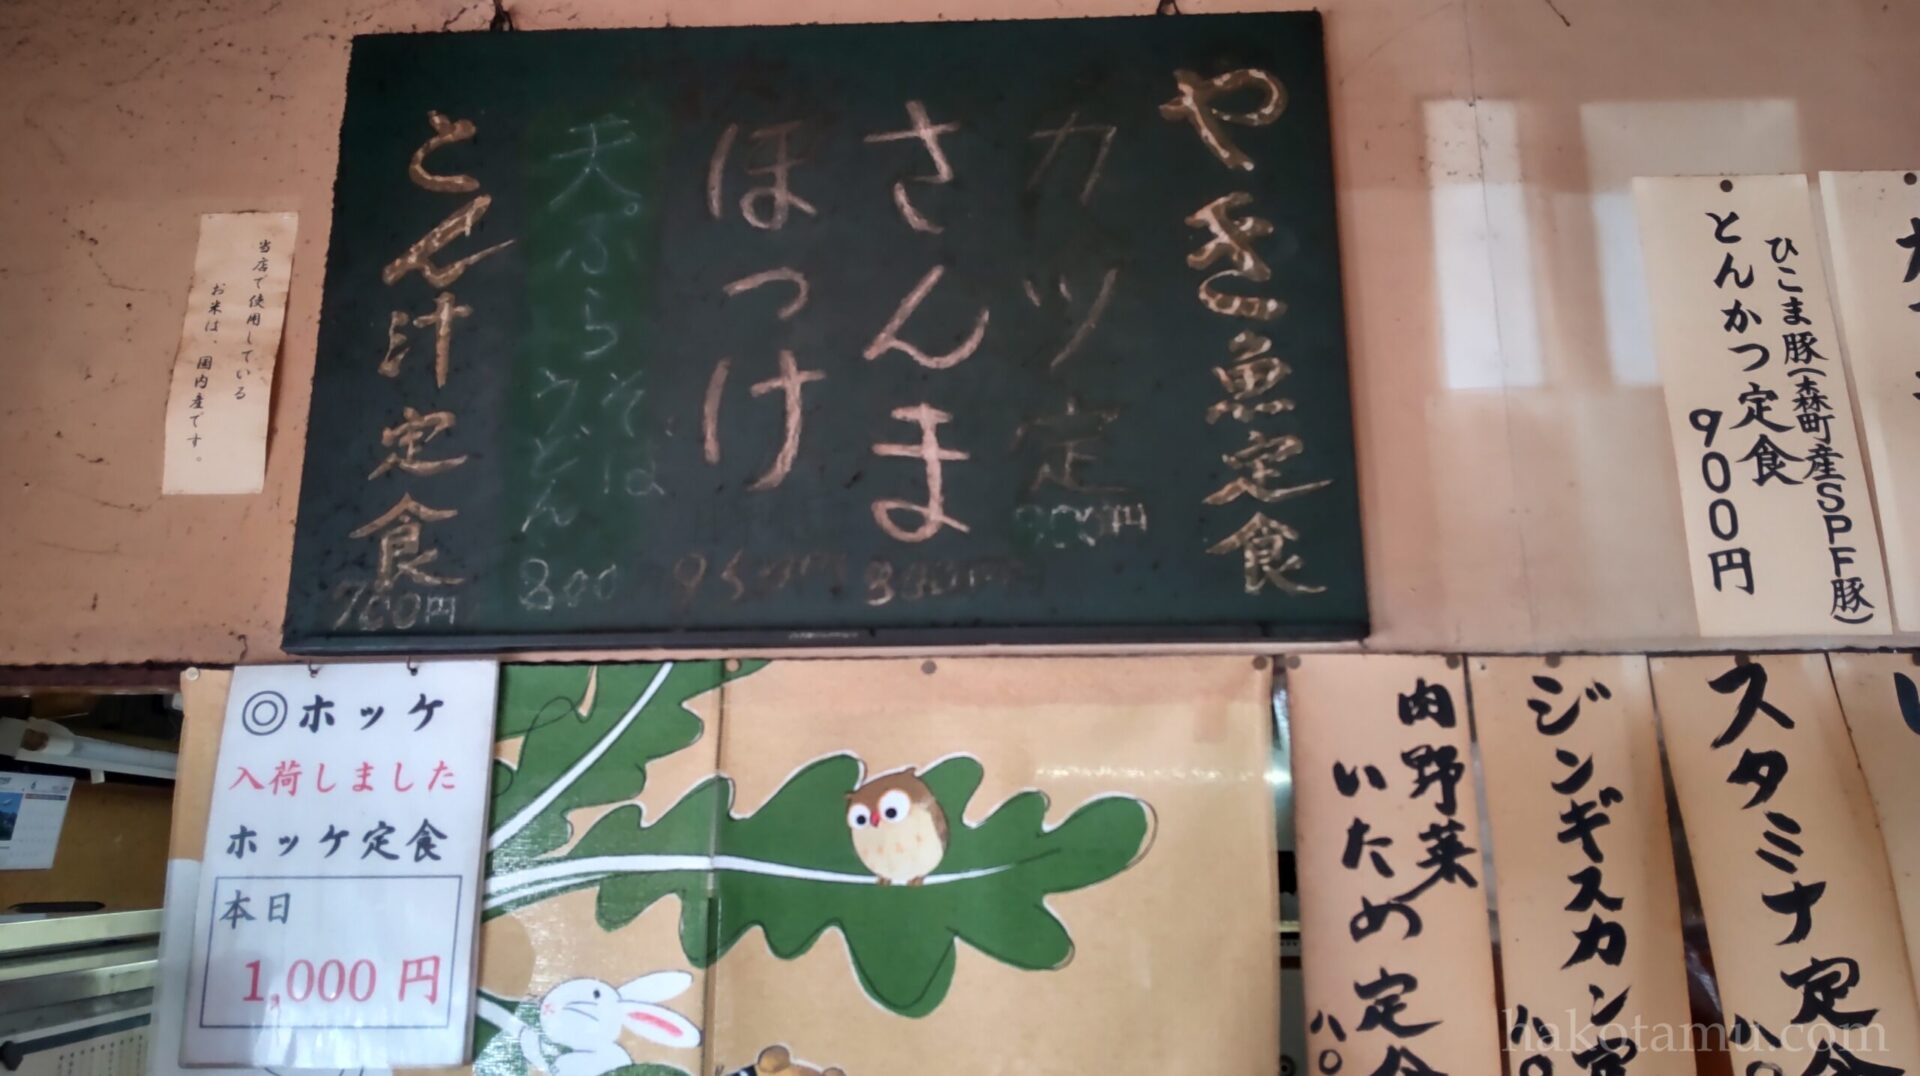 やき魚定食
カツ定
900円
さんま
ほっけ
天ぷらそば
うどん
800
とん汁定食
700円
当店で使用している
お米は、国内産です。
ひこま豚(森町産SPF豚)
とんかつ定食
900円
◎ホッケ
入荷しました
ホッケ定食
本日
1,000円
スタミナ定
ジンギスカン定
肉野菜
いため定食
hakotamu.com